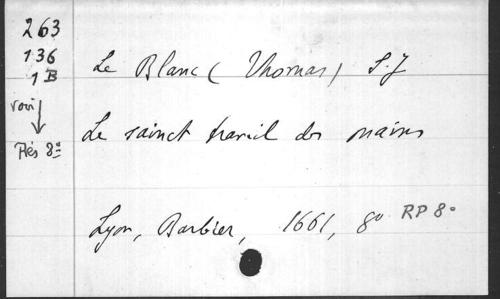 263
136
1 B
voir
Rés 8º
Le Blanc (Thomas) S.J
Le sainct travail des mains
Lyon, Barbier, 1661, 8º RP 8º